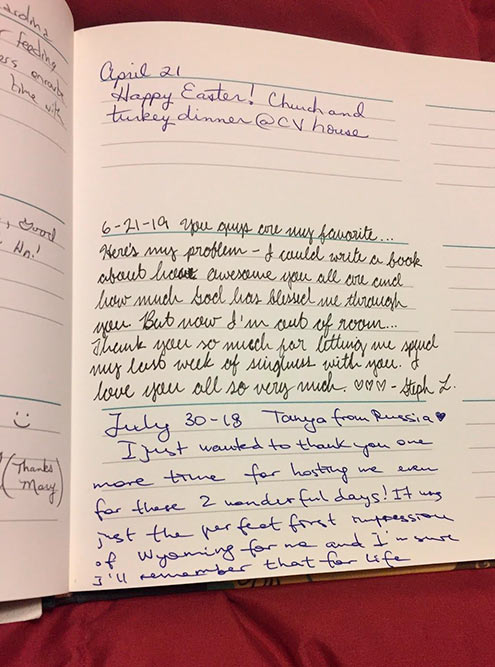 ardina
feeding
time with
Good
April 21
Happy Easter! Church and
turkey dinner @ CV house
6-21-19 You guys are my favorite...
Here's my problem - I could write a book
about how awesome you all are and
how much God has blessed me through
you. But now I'm out of room...
Thank you so much for letting me spend
my last week of singleness with you. I
love you all so very much. ♡♡♡ - Steph L.
July 30-18 Tanya from Russia ♥
I just wanted to thank you one
more time for hosting me even
for these 2 wonderful days! It was
just the perfect first impression
of Wyoming for me and I'm sure
I'll remember that for life
(Thanks
Mary)